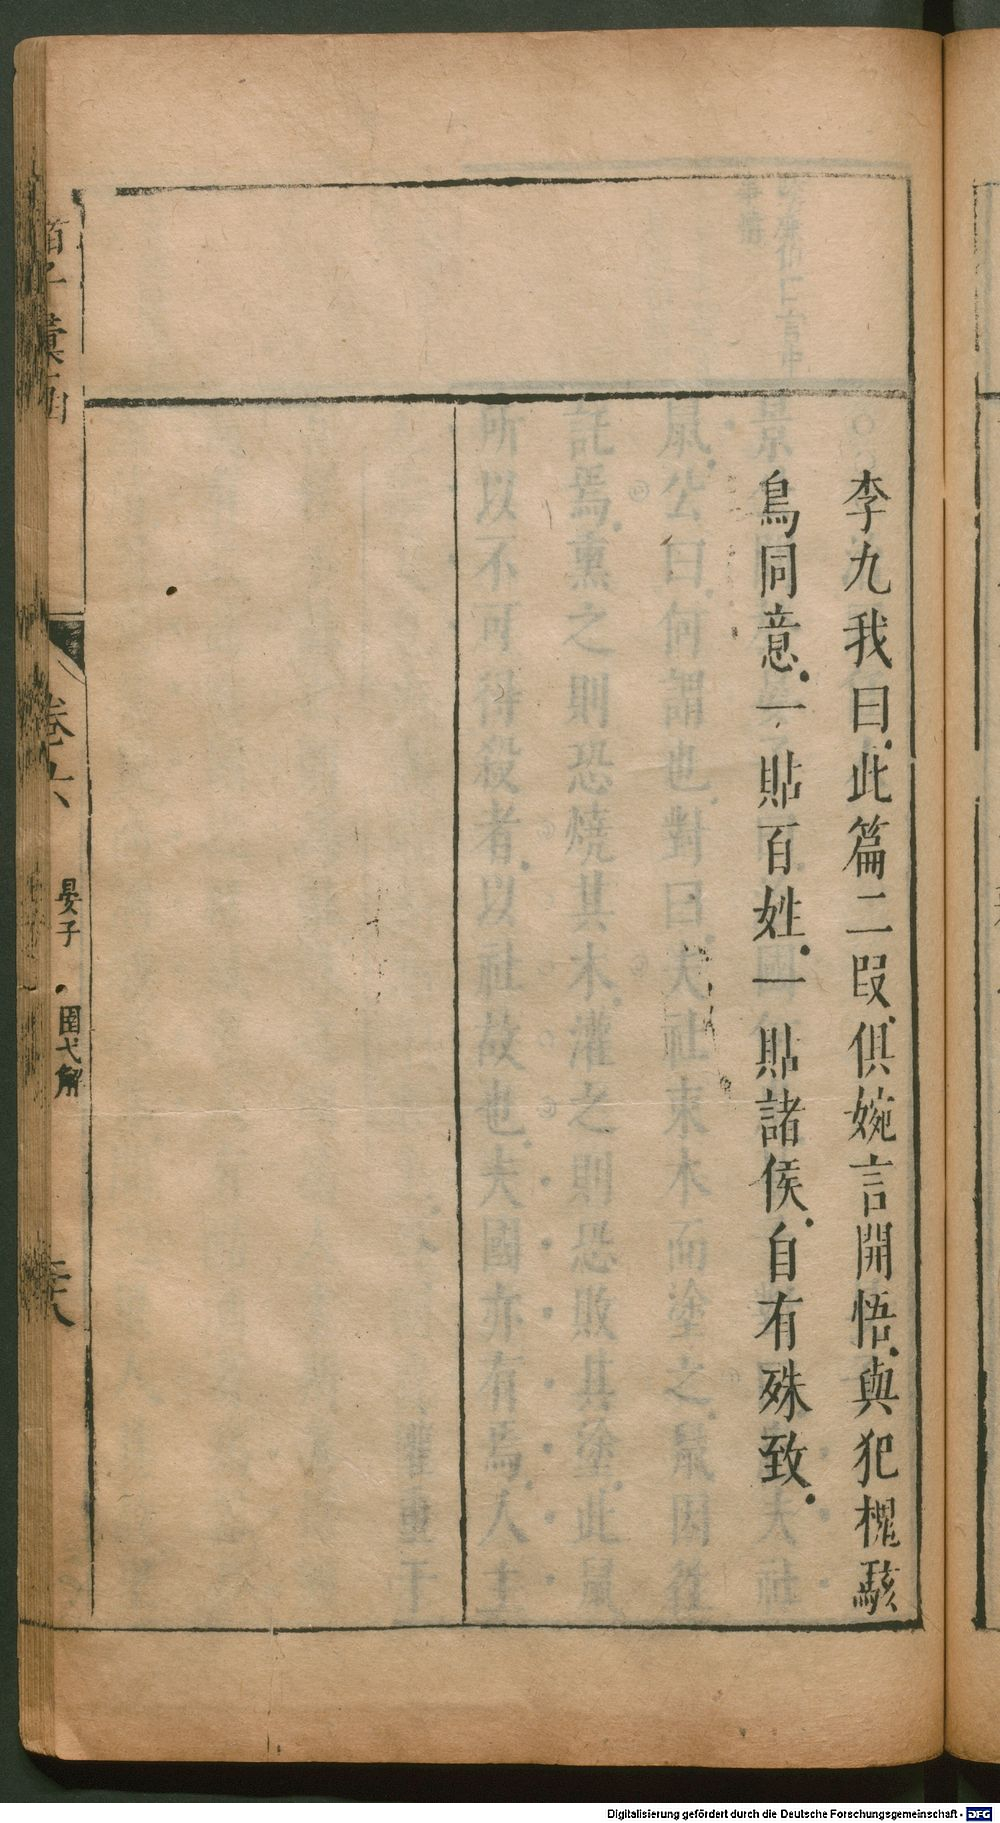 李九我曰此篇二段俱婉言開悟與犯槐駭
鳥同意一貼百姓一貼諸侯自有殊致
諸子彙函
卷六
晏子
圉弋解
Digitalisierung gefördert durch die Deutsche Forschungsgemeinschaft - DFG